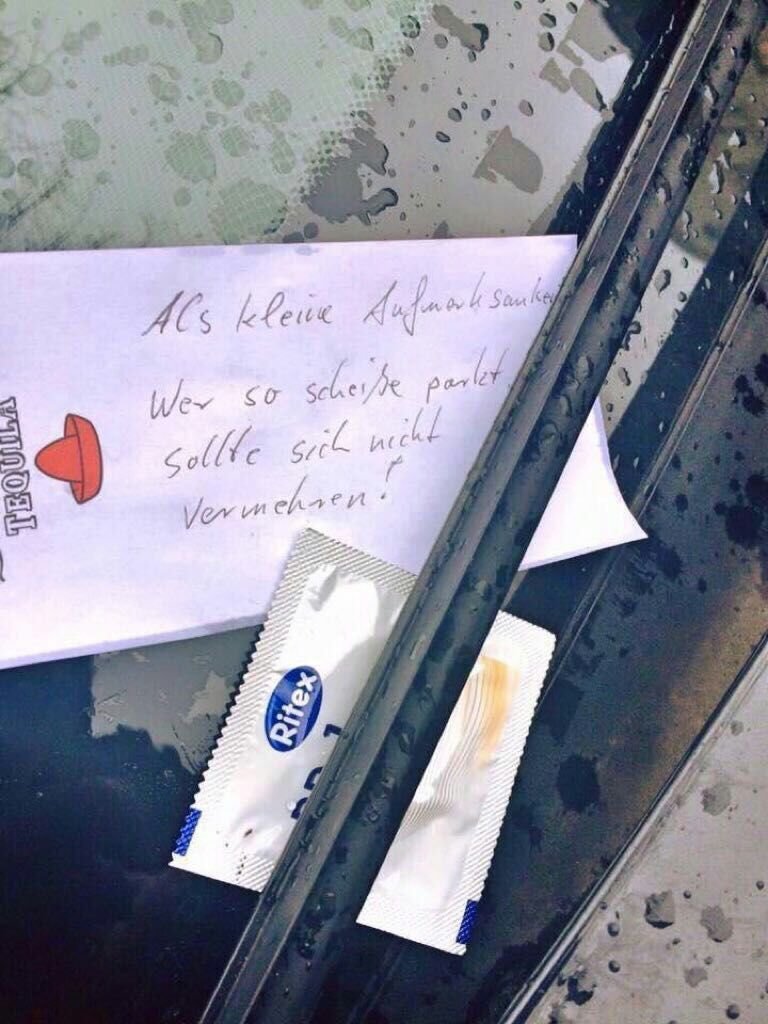 Als kleine Aufmerksamkei
Wer so scheiße parkt,
sollte sich nicht
vermehren!
TEQUILA
Ritex
RR.1